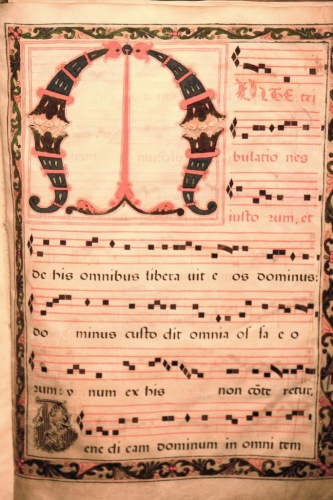 M VLTE tri
bulatio nes
iusto rum, et
de his omnibus libera uit e os dominus:
do minus custo dit omnia os sa e o
rum: v num ex his non cōte retur,
B ene di cam dominum in omni tem